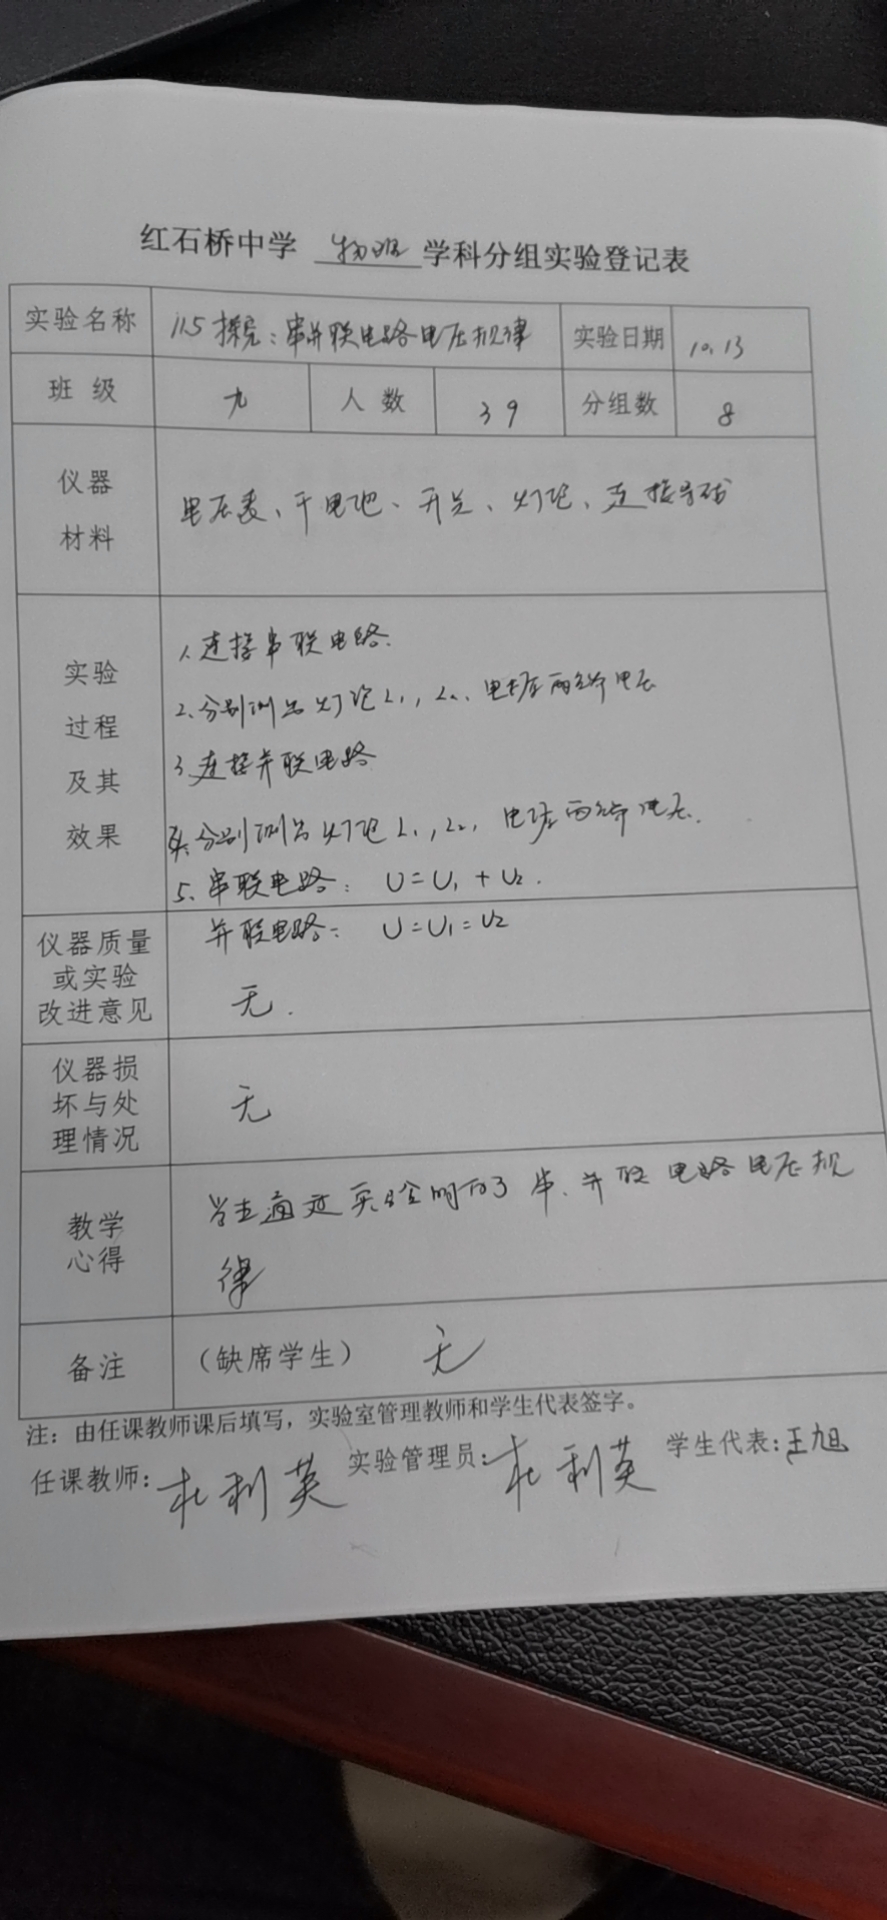 红石桥中学 物理 学科分组实验登记表
实验名称 11.5 探究：串并联电路电压规律 实验日期 10.13
班 级 九 人 数 39 分组数 8
仪器
材料
电压表、干电池、开关、灯泡、连接导线
实验
过程
及其
效果
1.连接串联电路.
2.分别测出灯泡L1，L2、电源两端电压
3.连接并联电路
4.分别测出灯泡L1，L2，电源两端电压.
5.串联电路： U=U1+U2.
并联电路： U=U1=U2
仪器质量
或实验
改进意见
无.
仪器损
坏与处
理情况
无
教学
心得
学生通过实验明白了串、并联电路电压规
律
备注 （缺席学生） 无
注：由任课教师课后填写，实验室管理教师和学生代表签字。
任课教师：杜利英 实验管理员：杜利英 学生代表：王旭